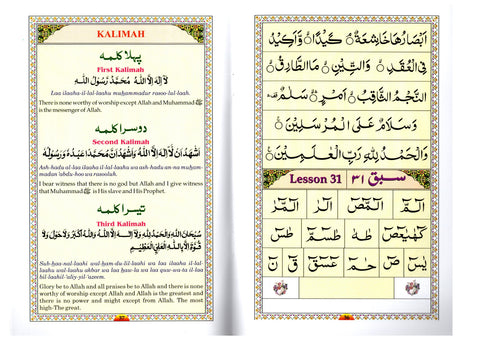 KALIMAH
پہلا کلمه
First Kalimah
لَا اِلٰهَ اِلَّا اللّٰهُ مُحَمَّدٌ رَّسُوْلُ اللّٰهِ
Laa ilaaha-il-lal-laahu muhammadur rasoo-lal-laah.
There is none worthy of worship except Allah and Muhammad ﷺ
is the messenger of Allah.
دوسرا کلمه
Second Kalimah
اَشْهَدُ اَنْ لَّا اِلٰهَ اِلَّا اللّٰهُ وَاَشْهَدُ اَنَّ مُحَمَّدًا عَبْدُهٗ وَرَسُوْلُهٗ
Ash-hadu al-laa ilaaha il-lal-laahu wa ash-hadu an-na muham-
madan 'abdu-hoo wa rasooluh.
I bear witness that there is no god but Allah and I give witness
that Muhammad ﷺ is His slave and His Prophet.
تیسرا کلمه
Third Kalimah
سُبْحَانَ اللّٰهِ وَالْحَمْدُ لِلّٰهِ وَلَا اِلٰهَ اِلَّا اللّٰهُ وَاللّٰهُ اَكْبَرُ وَلَا حَوْلَ وَلَا
قُوَّةَ اِلَّا بِاللّٰهِ الْعَلِيِّ الْعَظِيْمِ
Sub-haa-nal-laahi wal-ham-du-lil-laahi wa laa ilaaha il-lal-
laahu wal-laahu akbar wa laa hau-la wa laa quw-wa-ta il-laa
bil-laahil-'aliy-yil-'azeem.
Glory be to Allah and all praises be to Allah and there is none
worthy of worship except Allah and Allah is the greatest and
there is no power and might except from Allah. The most
high-The great.
37
اَبْصَارُهَا خَاشِعَةٌ ۝ كَيْدًا ۝ وَّاَكِيْدُ
فِى الْعُقَدِ ۝ وَالتِّيْنِ ۝ مَا الطَّارِقُ ۝
النَّجْمُ الثَّاقِبُ ۝ اَمْرٍ ۝ سَلٰمٌ
وَسَلَامٌ عَلَى الْمُرْسَلِيْنَ ۝
وَالْحَمْدُ لِلّٰهِ رَبِّ الْعٰلَمِيْنَ ۝
Lesson 31 سبق ۳۱
الٓمّٓ الٓمّٓصٓ الٓرٰ الٓمّٓرٰ
كٓهٰيٰعٓصٓ طٰهٰ طٰسٓمّٓ طٰسٓ
يٰسٓ صٓ حٰمٓ عٓسٓقٓ قٓ نٓ
36